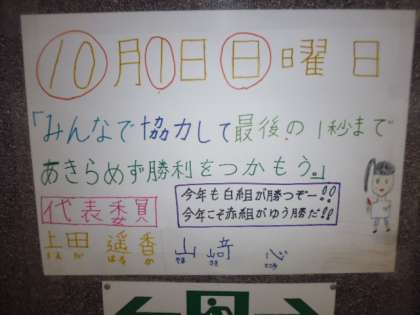 10月1日日曜日
「みんなで協力して最後の1秒まで
あきらめず勝利をつかもう。」
代表委員
今年も白組が勝つぞー!!
今年こそ赤組がゆう勝だ!!
上田遥香 山﨑心
うえだ はるか やまさき こころ